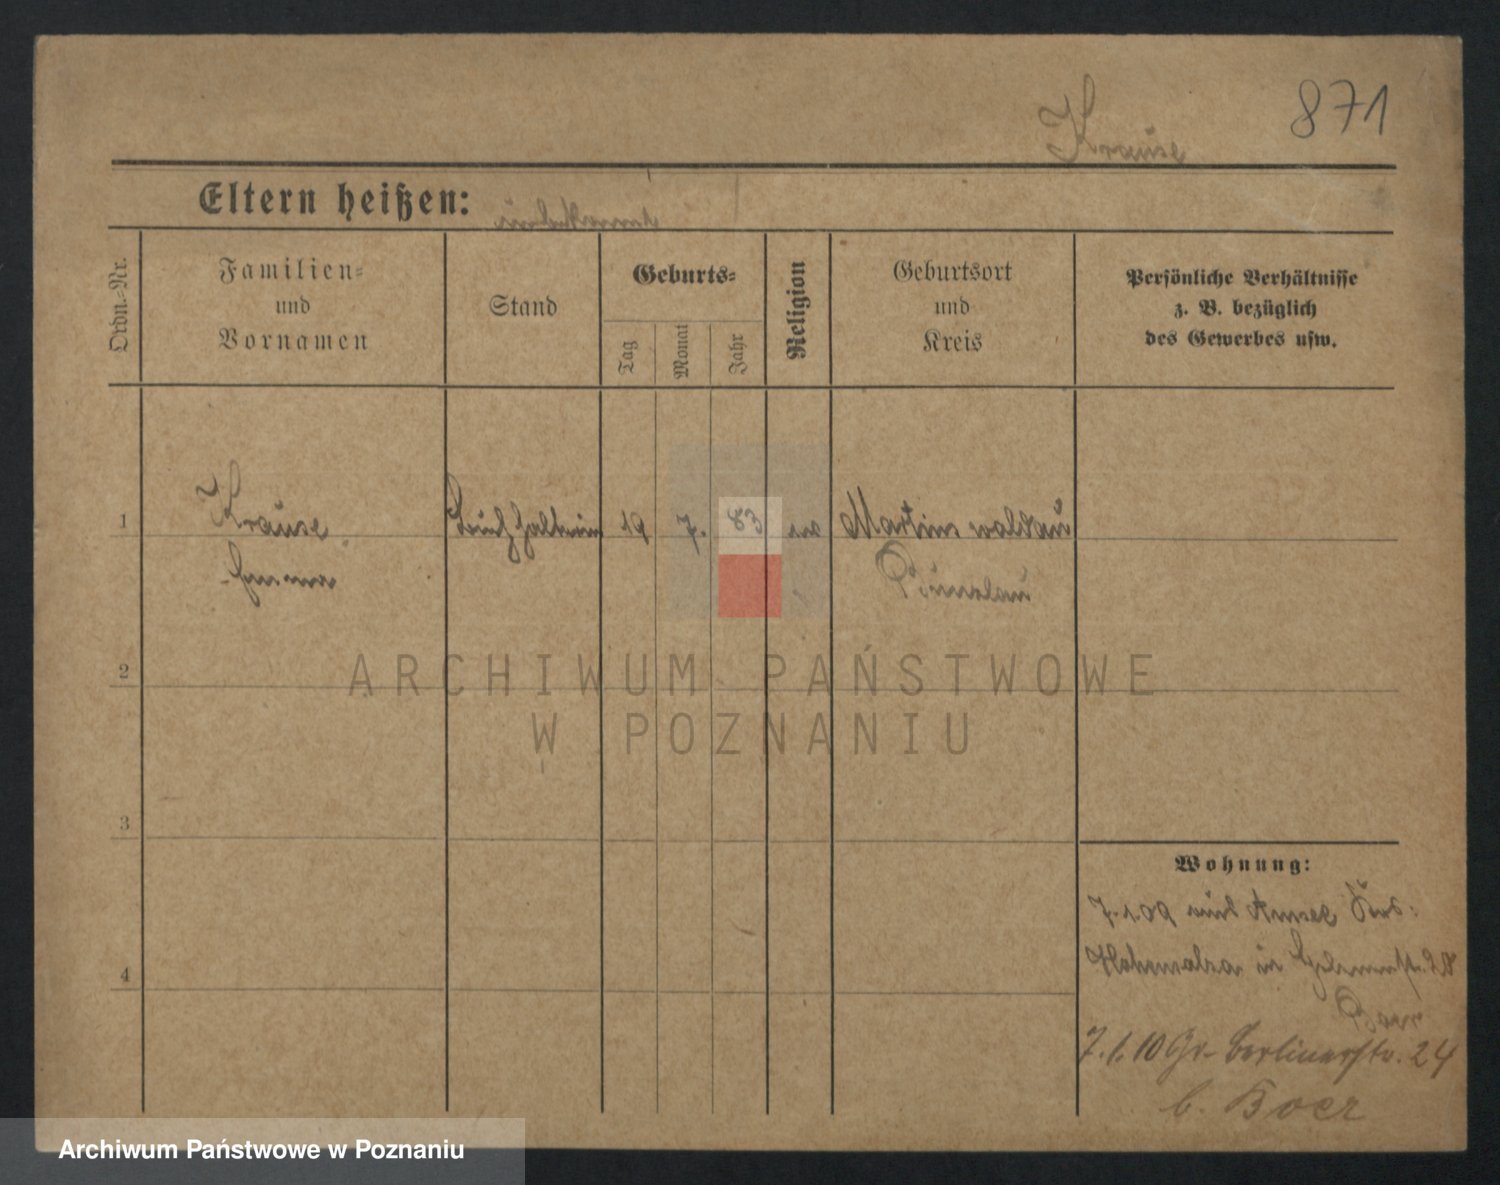 871
Krause
Eltern heißen: unbekannt
Ordn.-Nr.
Familien-
und
Vornamen
Stand
Geburts-
Tag
Monat
Jahr
Religion
Geburtsort
und
Kreis
Persönliche Verhältnisse
z. B. bezüglich
des Gewerbes usw.
1 Krause Buchhalterin 19 7. 83 ev Martinswaldau
Emma Bunzlau
2
ARCHIWUM PAŃSTWOWE
W POZNANIU
3
Wohnung:
7.1.09 aus Amsee Krs:
4 Hohensalza in 28
Boer
7.1.10 Gr. Berlinerstr. 24
b. Boer
Archiwum Państwowe w Poznaniu